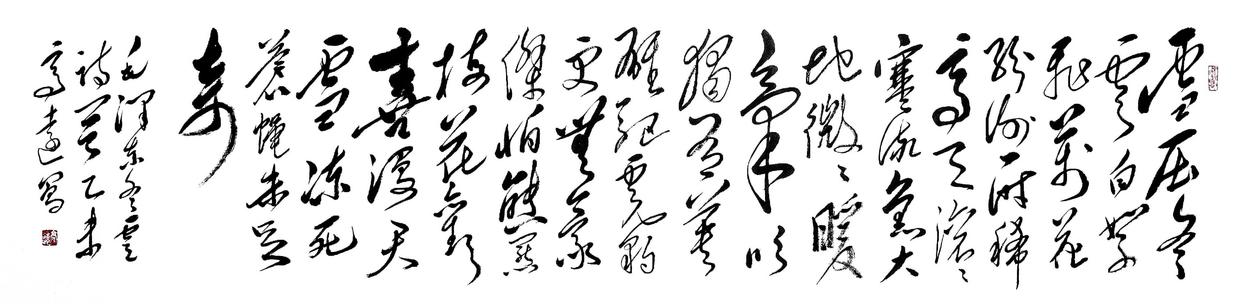 雪压冬
雲白絮
飛萬花
紛谢一时稀
高天滚滚
寒流急大
地微微暖
氣吹
獨有英
雄驱虎豹
更無豪
傑怕熊罴
梅花欢
喜漫天
雪冻死
苍蝇未足
奇
毛泽东冬雲
诗一首乙未
高遠写